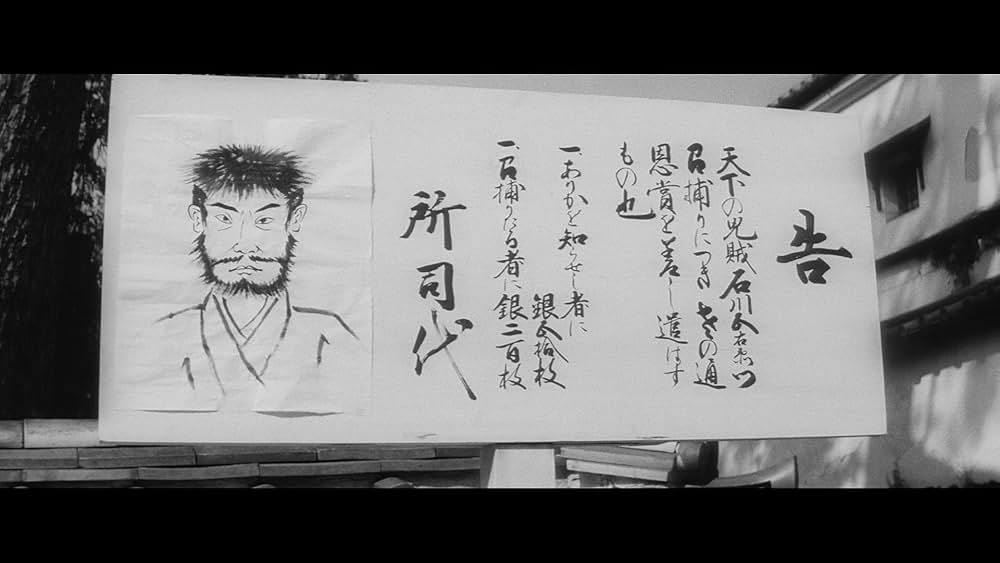 告
天下の兇賊石川五右衛門
召捕りにつき左の通
恩賞を差し遣はす
もの也
一、ありかを知らせし者に
銀五拾枚
一、召捕りたる者に銀二百枚
所司代